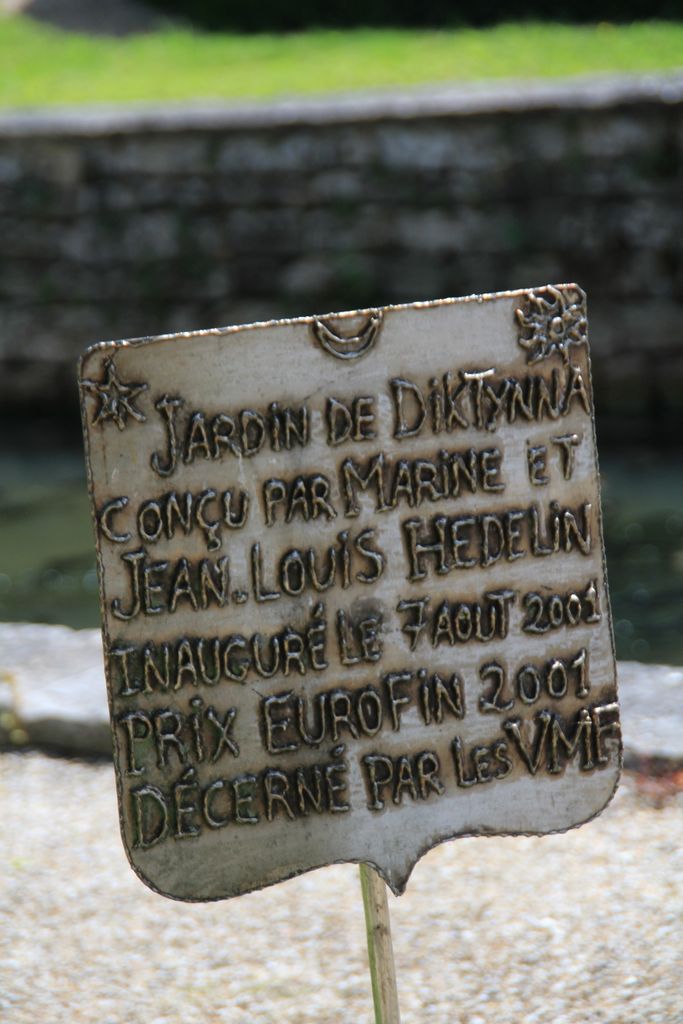 JARDIN DE DIKTYNNA
CONÇU PAR MARINE ET
JEAN.LOUIS HEDELIN
INAUGURÉ LE 7 AOUT 2001
PRIX EUROFIN 2001
DÉCERNÉ PAR LES VMF